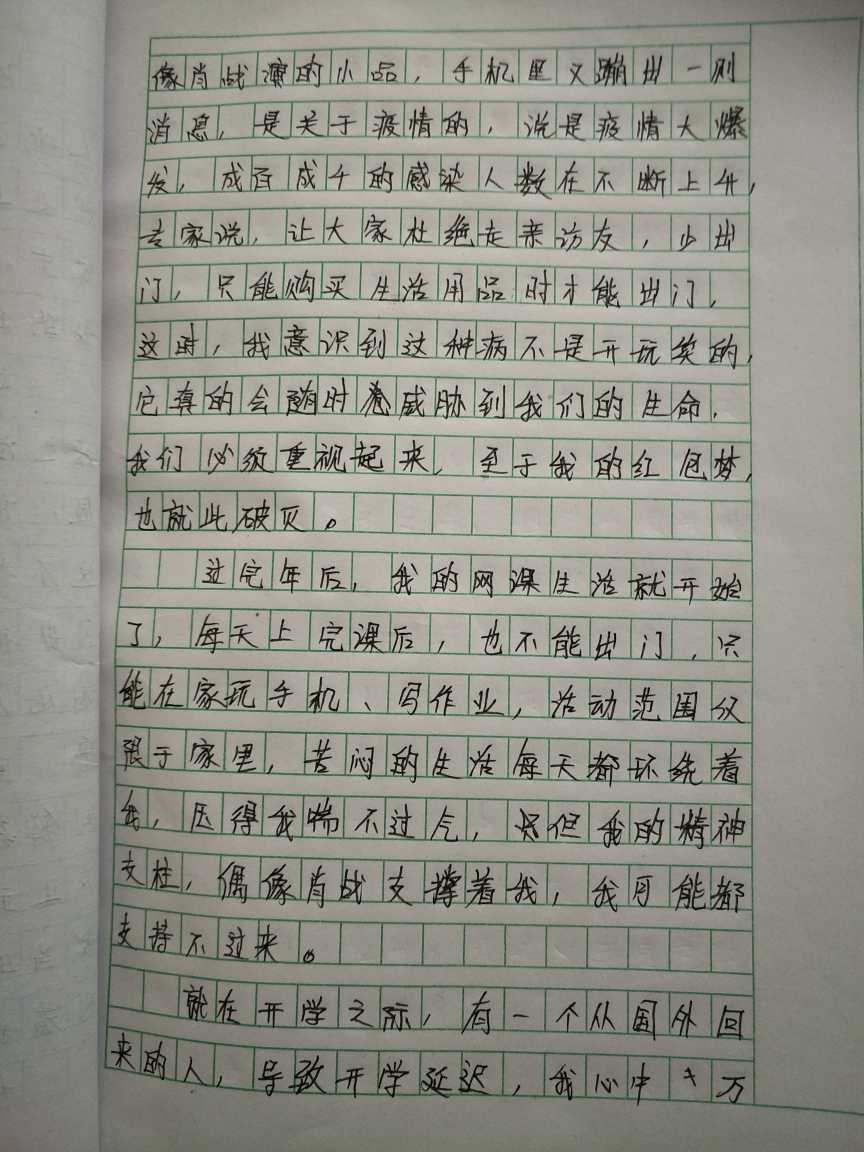 像肖战演的小品，手机里又蹦出一则
消息，是关于疫情的，说是疫情大爆
发，成百成千的感染人数在不断上升，
专家说，让大家杜绝走亲访友，少出
门，只能购买生活用品时才能出门，
这时，我意识到这种病不是开玩笑的，
它真的会随时威胁到我们的生命，
我们必须重视起来，至于我的红包梦，
也就此破灭。
过完年后，我的网课生活就开始
了，每天上完课后，也不能出门，只
能在家玩手机、写作业，活动范围仅
限于家里，苦闷的生活每天都环绕着
我，压得我喘不过气，但我的精神
支柱，偶像肖战支撑着我，我可能都
支持不过来。
就在开学之际，有一个从国外回
来的人，导致开学延迟，我心中十万